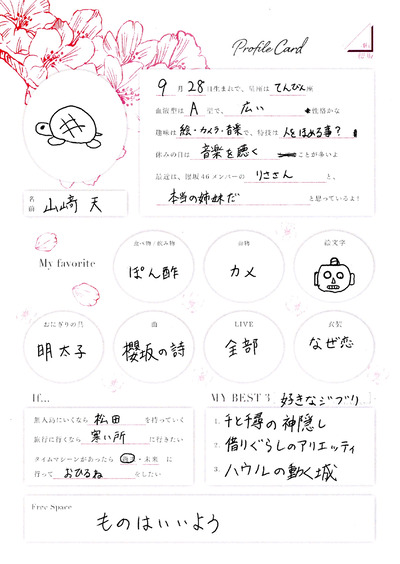 Profile Card
9月28日生まれで、星座はてんびん座
血液型はA型で、広い性格かな
趣味は絵・カメラ・音楽で、特技は人をほめる事?
休みの日は音楽を聴くことが多いよ
最近は、櫻坂46メンバーのりささんと、
本当の姉妹だと思っているよ!
名前 山﨑 天
My favorite
食べ物/飲み物
ぽん酢
動物
カメ
絵文字
おにぎりの具
明太子
曲
櫻坂の詩
LIVE
全部
衣装
なぜ恋
If...
無人島にいくなら松田を持っていく
旅行に行くなら寒い所に行きたい
タイムマシーンがあったら過去・未来に
行っておひるねをしたい
MY BEST 3 好きなジブリ
1. 千と千尋の神隠し
2. 借りぐらしのアリエッティ
3. ハウルの動く城
Free Space
ものはいいよう